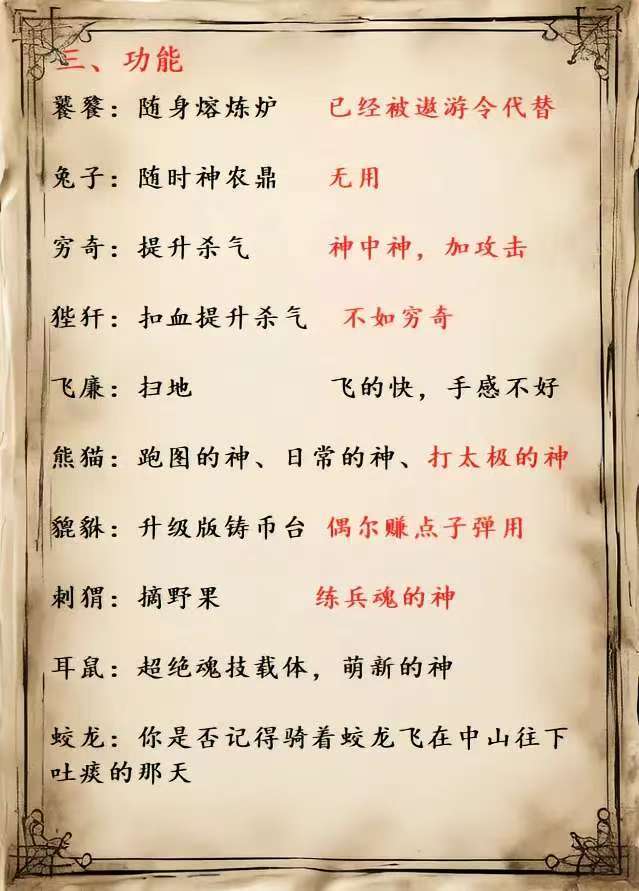 三、功能
饕餮：随身熔炼炉 已经被遨游令代替
兔子：随时神农鼎 无用
穷奇：提升杀气 神中神，加攻击
狴犴：扣血提升杀气 不如穷奇
飞廉：扫地 飞的快，手感不好
熊猫：跑图的神、日常的神、打太极的神
貔貅：升级版铸币台 偶尔赚点子弹用
刺猬：摘野果 练兵魂的神
耳鼠：超绝魂技载体，萌新的神
蛟龙：你是否记得骑着蛟龙飞在中山往下
吐痰的那天